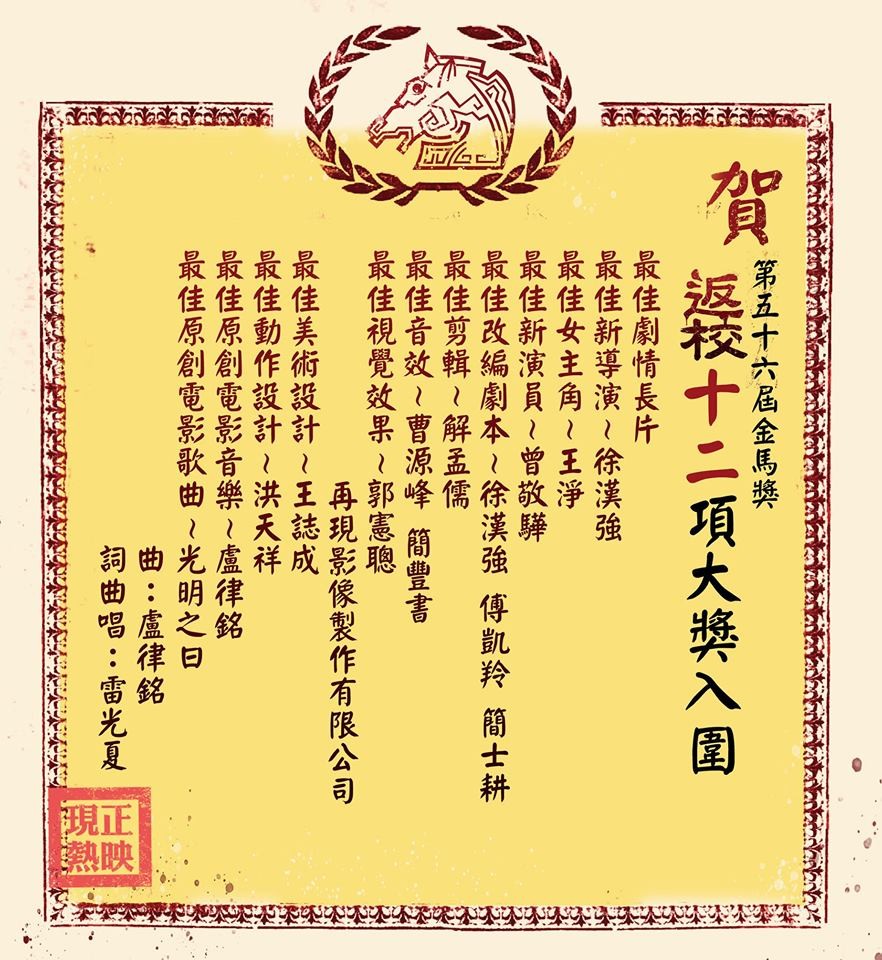 賀
第五十六屆金馬獎
返校十二項大獎入圍
最佳劇情長片
最佳新導演~徐漢強
最佳女主角~王淨
最佳新演員~曾敬驊
最佳改編劇本~徐漢強 傅凱羚 簡士耕
最佳剪輯~解孟儒
最佳音效~曹源峰 簡豐書
最佳視覺效果~郭憲聰
再現影像製作有限公司
最佳美術設計~王誌成
最佳動作設計~洪天祥
最佳原創電影音樂~盧律銘
最佳原創電影歌曲~光明之日
曲:盧律銘
詞曲唱:雷光夏
正映
現熱